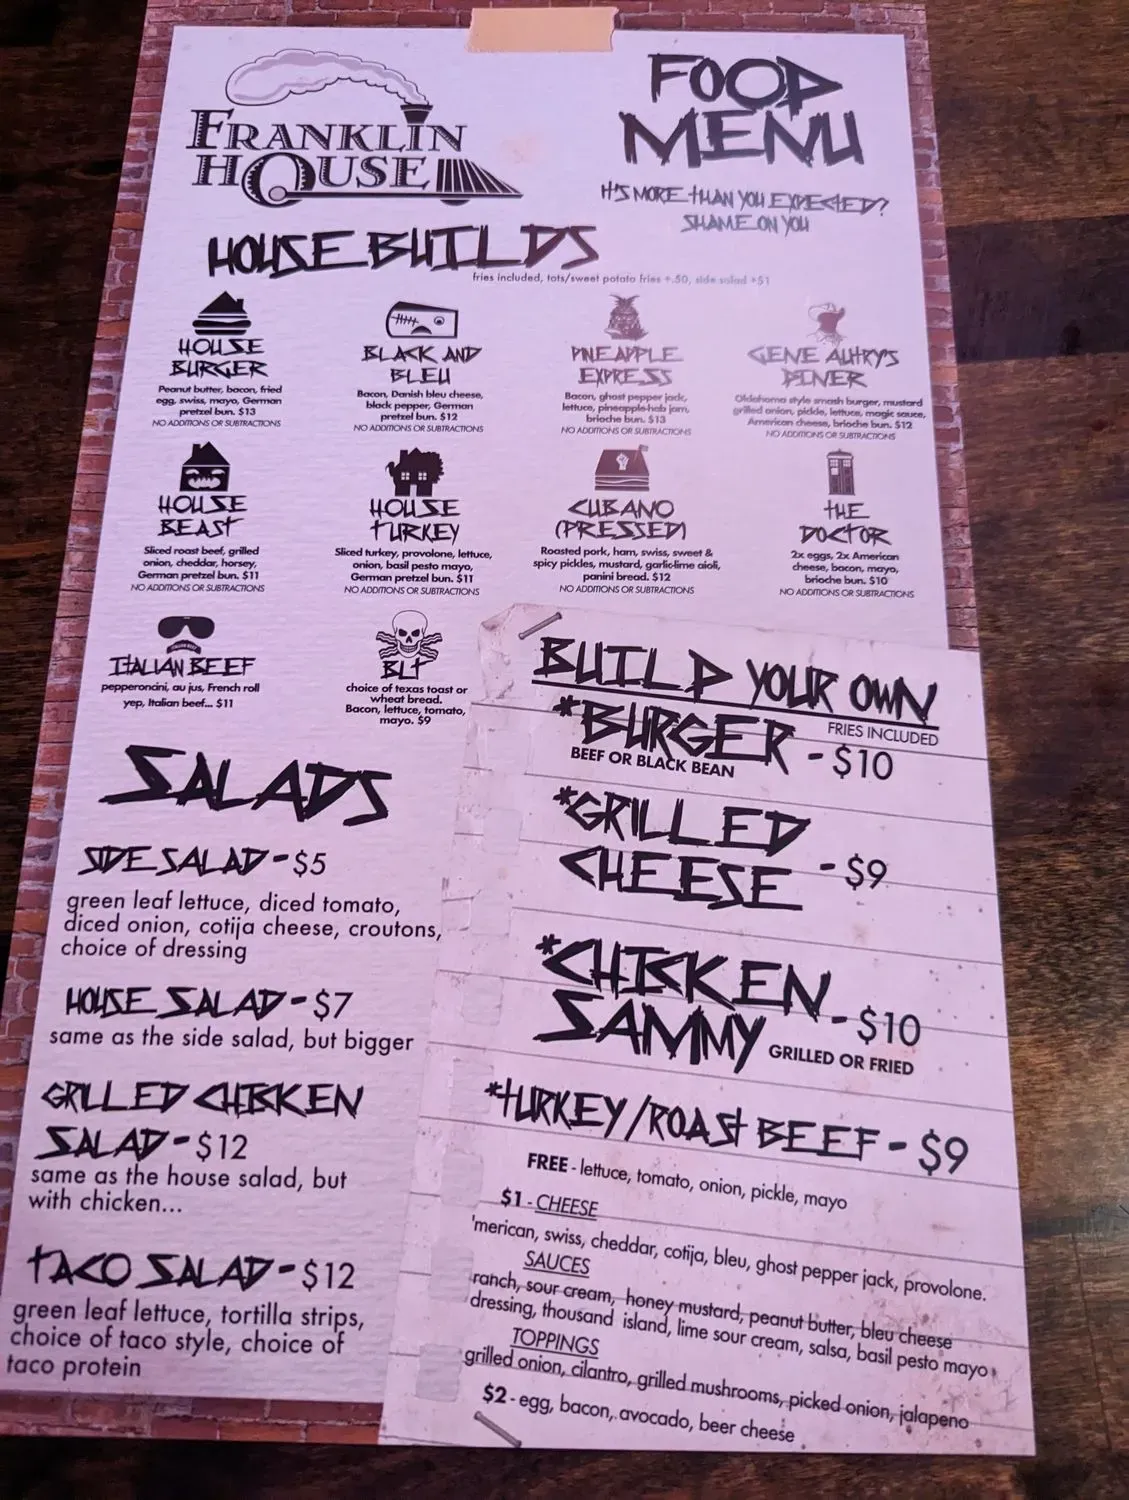 FRANKLIN
HOUSE
FOOD
MENU
IT'S MORE THAN YOU EXPECTED?
SHAME ON YOU
HOUSE BUILDS
fries included, tots/sweet potato fries +.50, side salad +$1
HOUSE
BURGER
Peanut butter, bacon, fried
egg, swiss, mayo, German
pretzel bun. $13
NO ADDITIONS OR SUBTRACTIONS
BLACK AND
BLEU
Bacon, Danish bleu cheese,
black pepper, German
pretzel bun. $12
NO ADDITIONS OR SUBTRACTIONS
PINEAPPLE
EXPRESS
Bacon, ghost pepper jack,
lettuce, pineapple-hab jam,
brioche bun. $13
NO ADDITIONS OR SUBTRACTIONS
GENE AUTRY'S
DINER
Oklahoma style smash burger, mustard
grilled onion, pickle, lettuce, magic sauce,
American cheese, brioche bun. $12
NO ADDITIONS OR SUBTRACTIONS
HOUSE
BEAST
Sliced roast beef, grilled
onion, cheddar, horsey,
German pretzel bun. $11
NO ADDITIONS OR SUBTRACTIONS
HOUSE
TURKEY
Sliced turkey, provolone, lettuce,
onion, basil pesto mayo,
German pretzel bun. $11
NO ADDITIONS OR SUBTRACTIONS
CUBANO
(PRESSED)
Roasted pork, ham, swiss, sweet &
spicy pickles, mustard, garlic-lime aioli,
panini bread. $12
NO ADDITIONS OR SUBTRACTIONS
THE
DOCTOR
2x eggs, 2x American
cheese, bacon, mayo,
brioche bun. $10
NO ADDITIONS OR SUBTRACTIONS
ITALIAN BEEF
pepperoncini, au jus, French roll
yep, Italian beef... $11
BLT
choice of texas toast or
wheat bread.
Bacon, lettuce, tomato,
mayo. $9
SALADS
SIDE SALAD - $5
green leaf lettuce, diced tomato,
diced onion, cotija cheese, croutons,
choice of dressing
HOUSE SALAD - $7
same as the side salad, but bigger
GRILLED CHICKEN
SALAD - $12
same as the house salad, but
with chicken...
TACO SALAD - $12
green leaf lettuce, tortilla strips,
choice of taco style, choice of
taco protein
BUILD YOUR OWN
FRIES INCLUDED
*BURGER - $10
BEEF OR BLACK BEAN
*GRILLED
CHEESE - $9
*CHICKEN
SAMMY - $10
GRILLED OR FRIED
*TURKEY/ROAST BEEF - $9
FREE - lettuce, tomato, onion, pickle, mayo
$1 - CHEESE
'merican, swiss, cheddar, cotija, bleu, ghost pepper jack, provolone.
SAUCES
ranch, sour cream, honey mustard, peanut butter, bleu cheese
dressing, thousand island, lime sour cream, salsa, basil pesto mayo
TOPPINGS
grilled onion, cilantro, grilled mushrooms, picked onion, jalapeno
$2 - egg, bacon, avocado, beer cheese